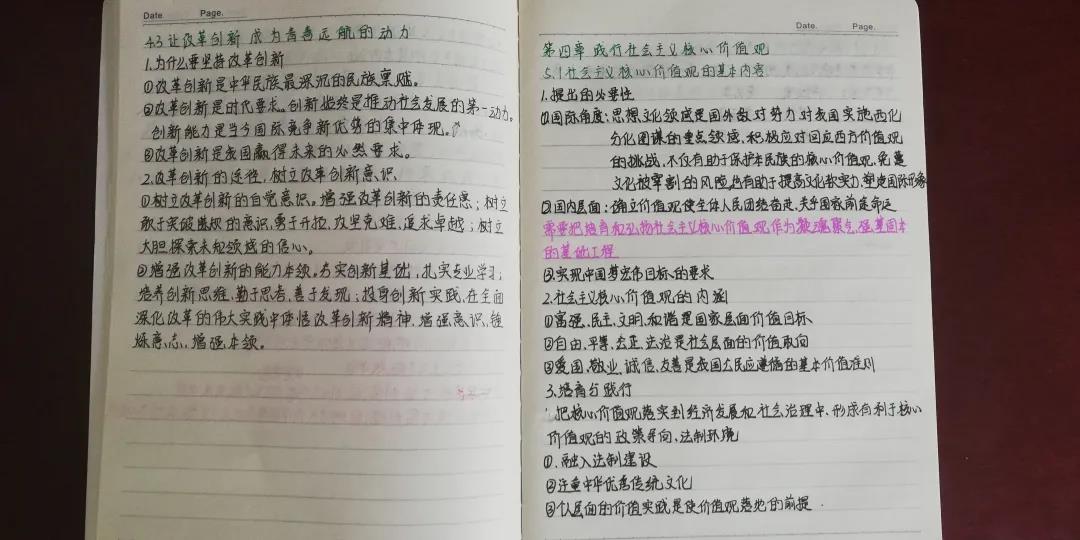 Date. Page.
4.3 让改革创新成为青春远航的动力
1.为什么要坚持改革创新
①改革创新是中华民族最深沉的民族禀赋。
②改革创新是时代要求。创新始终是推动社会发展的第一动力。
创新能力是当今国际竞争新优势的集中体现。
③改革创新是我国赢得未来的必然要求。
2.改革创新的途径,树立改革创新意识。
①树立改革创新的自觉意识。增强改革创新的责任感;树立
敢于突破陈规的意识,勇于开拓,攻坚克难,追求卓越;树立
大胆探索未知领域的信心。
②增强改革创新的能力本领。夯实创新基础,扎实专业学习;
培养创新思维,勤于思考,善于发现;投身创新实践,在全面
深化改革的伟大实践中体悟改革创新精神,增强意识,锤
炼意志,增强本领。
Date. Page.
第四章 践行社会主义核心价值观
5.1社会主义核心价值观的基本内容
1.提出的必要性
①国际角度:思想文化领域是国外敌对势力对我国实施西化
分化图谋的重点领域,积极应对回应西方价值观
的挑战,不仅有助于保护本民族的核心价值观,免遭
文化被宰割的风险,也有助于提高文化软实力,塑造国际形象
②国内层面:确立价值观使全体人民团结奋进,关乎国家前途命运
需要把培育和弘扬社会主义核心价值观作为凝魂聚气,强基固本
的基础工程
③实现中国梦宏伟目标的要求
2.社会主义核心价值观的内涵
①富强、民主、文明、和谐是国家层面价值目标
②自由、平等、公正、法治是社会层面的价值取向
③爱国、敬业、诚信、友善是我国公民应遵循的基本价值准则
3.培育与践行
把核心价值观落实到经济发展和社会治理中,形成有利于核心
价值观的政策导向、法制环境
①.融入法制建设
②注重中华优秀传统文化
③个人层面的价值实践是使价值观落地的前提.